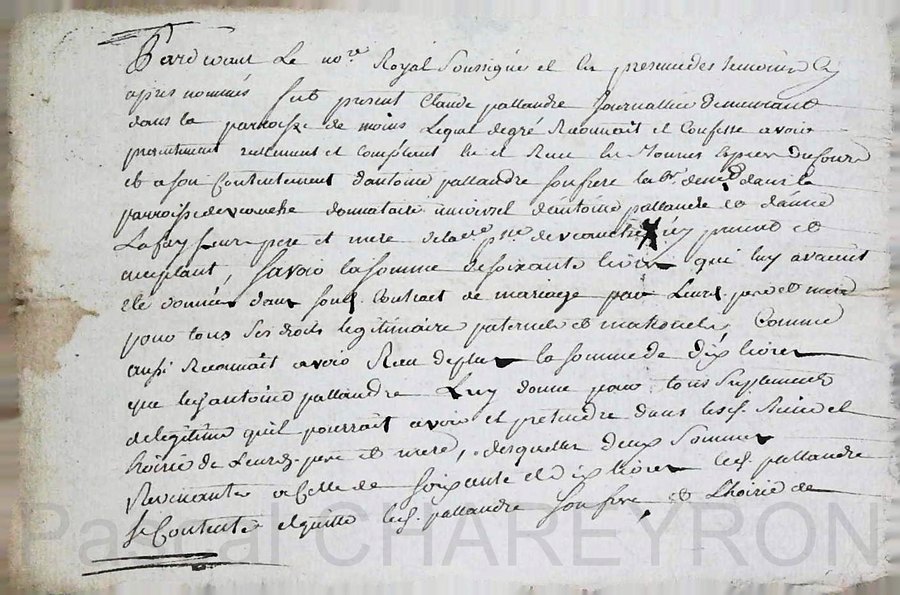 Pardevant Le no.re Royal Soussigné et les presence des temoins cy
apres nommés fut present Claude pallandre Journallier demeurant
dans la parroisse de moins Lequel degré Reconnait et Confesse avoir
presentement reellement et comptant eu et Receu les Journes
et a son Contentement dantoine pallandre son frere lab.r dem.t dans la
parroisse de donnataire universel dantoine pallandre et danne
Lafay Leurs pere et mere de la p.sse de icy present et
acceptant, Savoir la somme de soixante livres qui luy avoient
été donnés dans son Contract de mariage par Leurs pere et mere
pour tous ses droits legitimaire paternels et maternels, Comme
aussi Reconnait avoir Receu de plus la somme de dix livres
que led antoine pallandre Luy donne pour tous Suplement
de legitime quil pourrait avoir et pretendre dans les biens et
hoirie de Leurs pere et mere, desquelles deux Sommes
Revenante a Celle de soixante et dix livres led pallandre
Se Contente et quitte led pallandre son frere et L'hoirie de
Pascal CHAREYRON